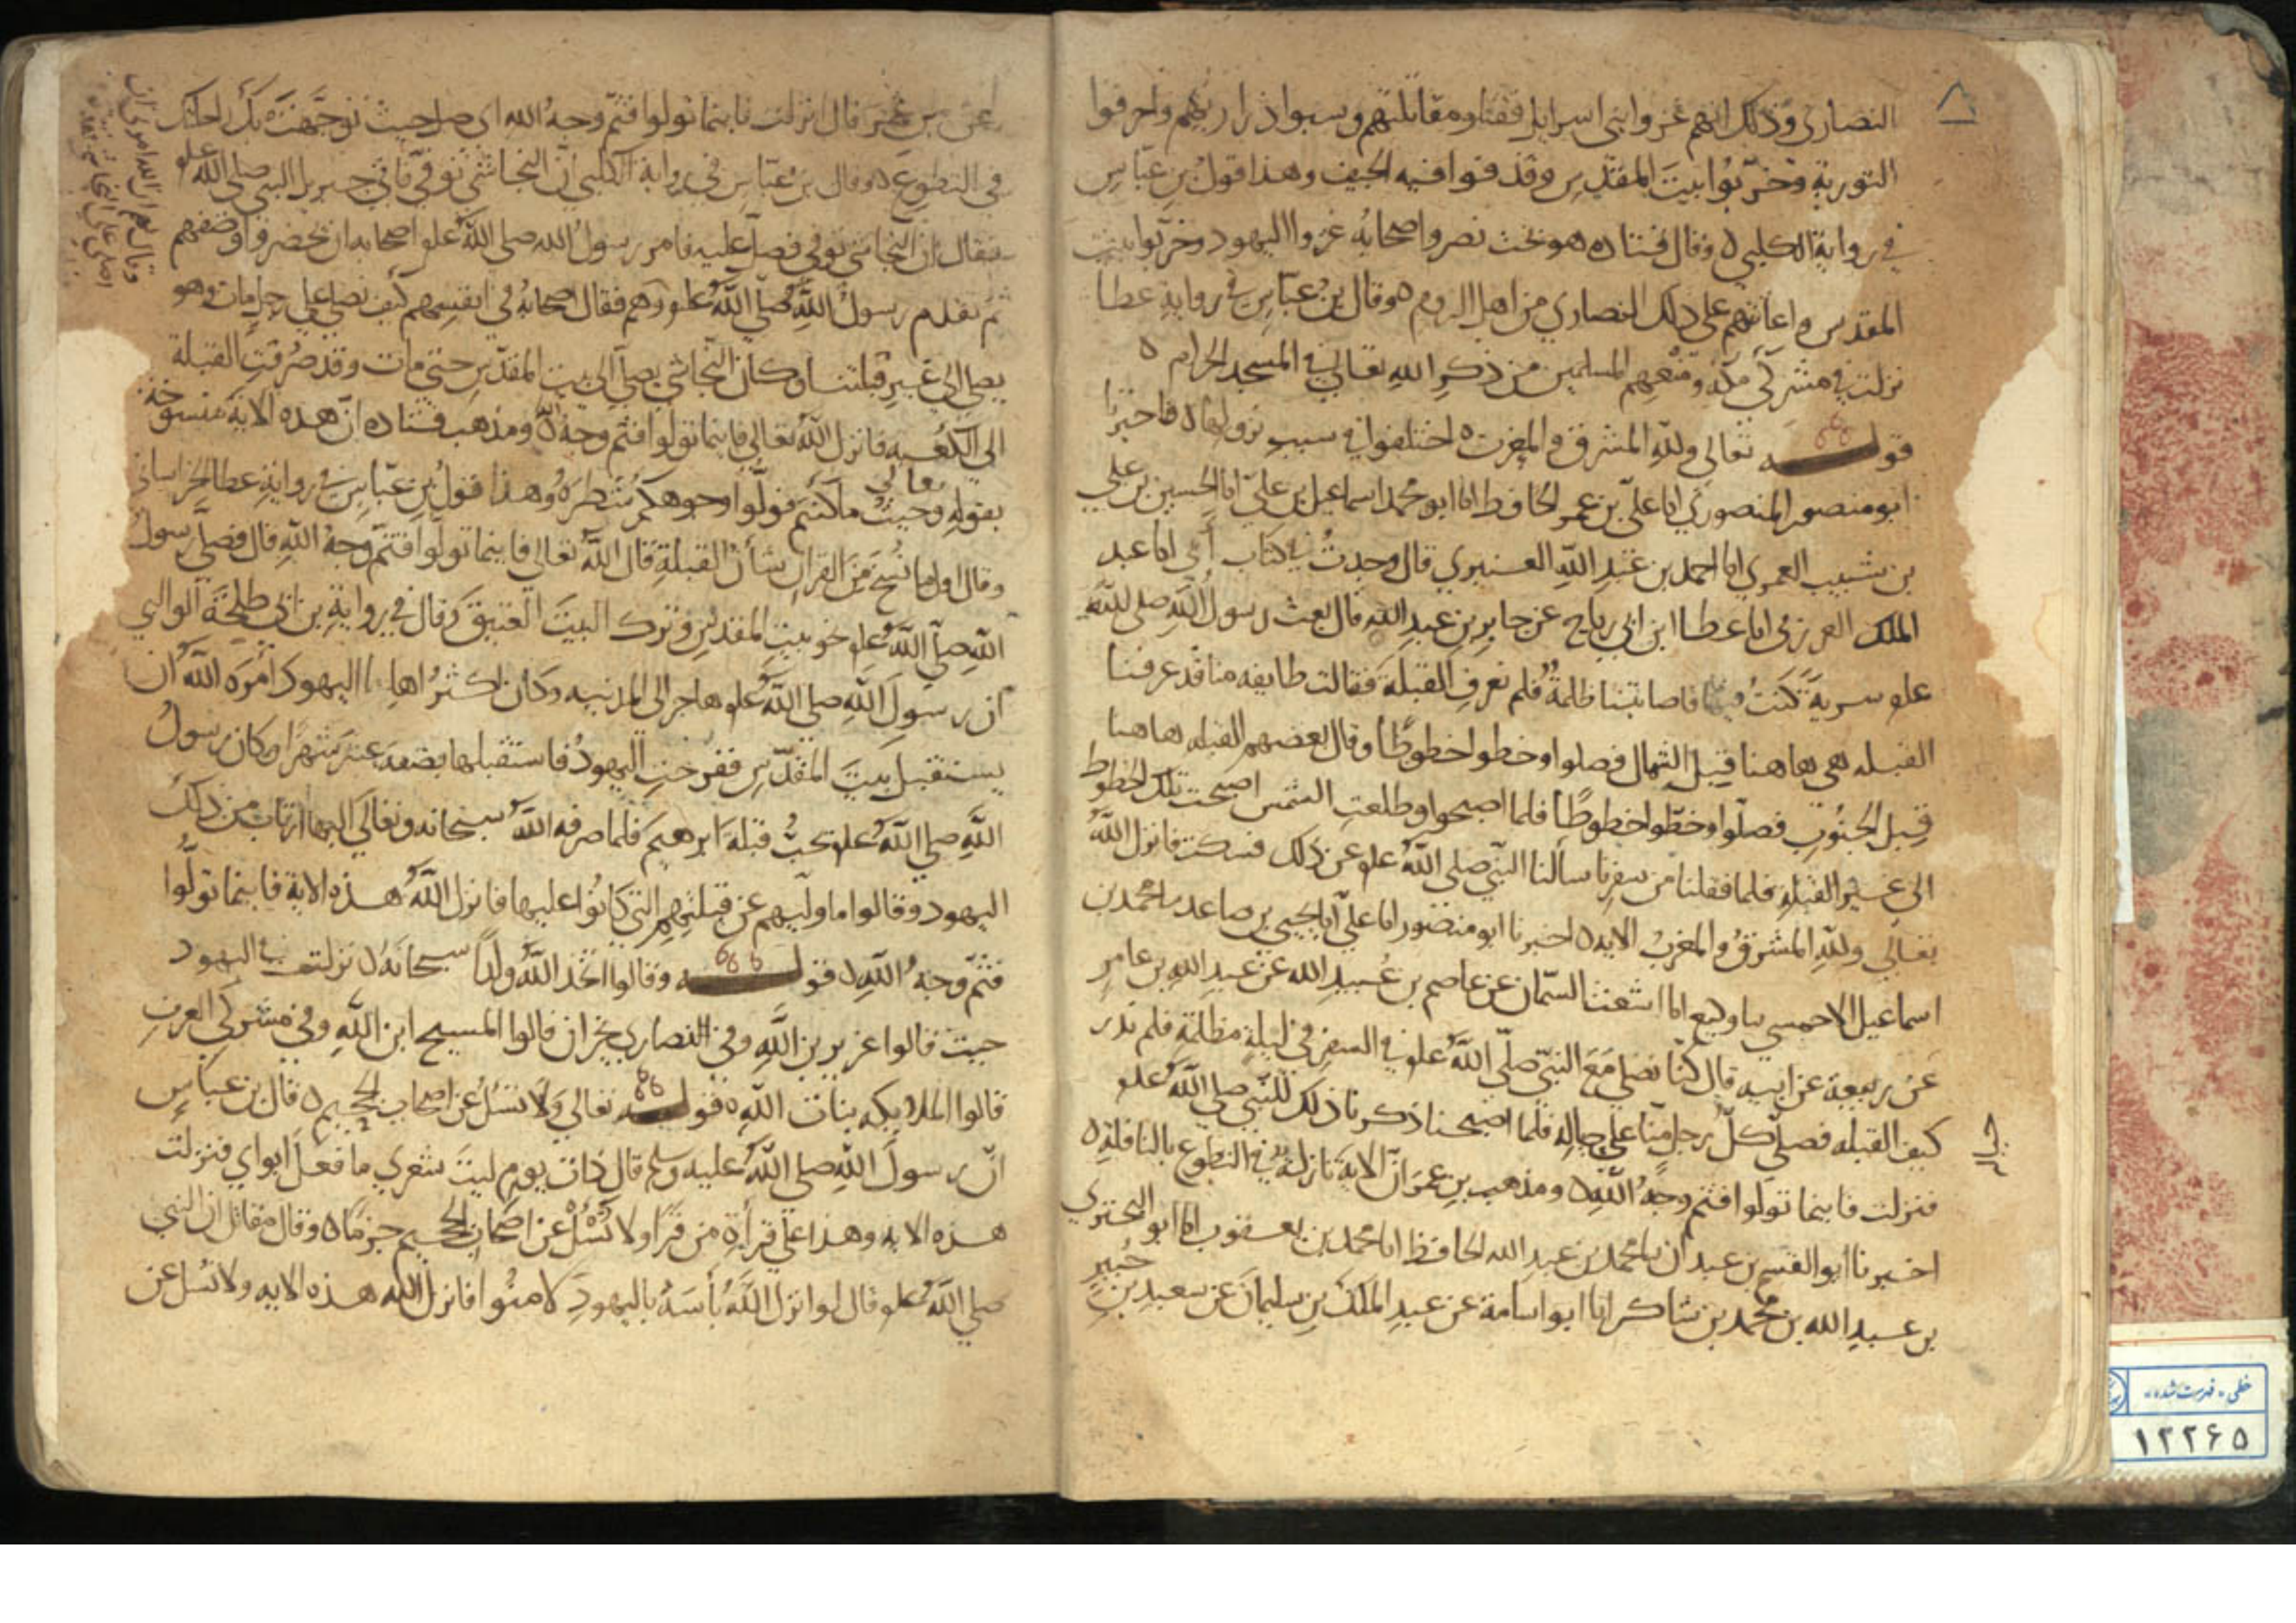 النصارى وذلك انهم غزوا بنى اسرايل فقتلوا مقاتلتهم وسبوا ذراريهم واحرقوا
التورية وخربوا بيت المقدس وقذفوا فيه الجيف وهذا قول بن عباس
في رواية الكلبي ٥ وقال قتاده هو بخت نصر واصحابه غزوا اليهود وخربوا بيت
المقدس واعانتهم على ذلك النصاري من اهل الروم ٥ وقال بن عباس في رواية عطا
نزلت في مشركي مكة ومنعهم المسلمين من ذكر الله تعالى في المسجد الحرام ٥
قوله تعالى ولله المشرق والمغرب ٥ اختلفوا في سبب نزولها ٥ فاخبرنا
ابو منصور المنصوري انا علي بن عمر الحافظ انا ابو محمد اسماعيل بن علي انا الحسين بن علي
بن شبيب العمري انا احمد بن عبد الله العنبري قال وجدت في كتاب أبي انا عبد
الملك العرزمي انا عطا ابن ابي رباح عن جابر بن عبد الله قال بعث رسول الله صلى الله
علو سرية كنت فيها فاصابتنا ظلمة فلم نعرف القبلة فقالت طايفه منا قد عرفنا
القبله هي هاهنا قبل الشمال فصلوا وخطوا خطوطا وقال بعضهم القبله هاهنا
قبل الجنوب فصلوا وخطوا خطوطا فلما اصبحوا وطلعت الشمس اصبحت تلك الخطوط
الى غير القبلة فلما قفلنا من سفرنا سالنا النبي صلى الله علو عن ذلك فسكت فانزل الله
تعالى ولله المشرق والمغرب الايه ٥ اخبرنا ابو منصور انا علي انا يحيى بن صاعد سا محمد بن
اسماعيل الاحمسي سا وكيع انا اشعث السمان عن عاصم بن عبيد الله عن عبد الله بن عامر
عن ربيعة عن ابيه قال كنا نصلي مع النبي صلى الله علو في السفر في ليلة مظلمة فلم ندر
كيف القبله فصلى كل رجل منا على حاله فلما اصبحنا ذكرنا ذلك للنبي صلى الله علو
فنزلت فاينما تولوا فثم وجه الله ٥ ومذهب بن عمر ان الاية نازلة في التطوع بالنافلة ٥
اخبرنا ابو القسم بن عبدان سا محمد بن عبد الله الحافظ انا محمد بن يعقوب انا ابو البختري
بن عبد الله بن محمد بن شاكر انا ابو اسامة عن عبد الملك بن سليمان عن سعيد بن جبير
عن بن عمر قال انزلت فاينما تولوا فثم وجه الله اي صل حيث توجهت بك راحلتك
في التطوع ٥ وقال بن عباس في رواية الكلبي ان النجاشي توفي فاتي جبريل النبي صلى الله علو
فقال ان النجاشي توفي فصل عليه فامر رسول الله صلى الله علو اصحابه ان يحضروا وصفهم
ثم تقدم رسول الله صلى الله علو وهم فقال اصحابه في انفسهم كيف نصلي على رجل مات وهو
يصلي الى غير قبلتنا وكان النجاشي يصلي الى بيت المقدس حتى مات وقد صرفت القبلة
الى الكعبه فانزل الله تعالي فاينما تولوا فثم وجه الله ومذهب قتاده ان هذه الاية منسوخة
بقوله تعالى وحيث ما كنتم فولوا وجوهكم شطره وهذا قول بن عباس في رواية عطا الخراساني
وقال اول ما نسخ من القران شأن القبلة قال الله تعالى فاينما تولوا فثم وجه الله قال فصلى رسول
الله صلى الله علو نحو بيت المقدس وترك البيت العتيق ٥ قال في رواية بن ابي طلحة الوالبي
ان رسول الله صلى الله علو هاجر الى المدنيه وكان اكثر اهلها اليهود امره الله ان
يستقبل بيت المقدس ففرحت اليهود فاستقبلها بضعة عشر شهرا وكان رسول
الله صلي الله علو يحب قبلة ابرهيم فلما صرفه الله سبحانه وتعالى اليها ارتاب من ذلك
اليهود وقالوا ما وليهم عن قبلتهم التي كانوا عليها فانزل الله هذه الاية فاينما تولوا
فثم وجه الله ٥ قوله وقالوا اتخذ الله ولدا سبحانه ٥ نزلت في اليهود
حيث قالوا عزير بن الله وفي النصاري نجران قالوا المسيح ابن الله وفي مشركي العرب
قالوا الملايكه بنات الله ٥ قوله تعالى ولا تسئل عن اصحاب الجحيم ٥ قال بن عباس
ان رسول الله صلى الله عليه وسلم قال ذات يوم ليت شعري ما فعل ابواي فنزلت
هذه الايه وهذا على قرأة من قرا ولا تسئل عن اصحاب الجحيم جزما ٥ وقال مقاتل ان النبي
صلى الله علو قال لو انزل الله بأسه باليهود لامنوا فانزل الله هذه الايه ولا تسل عن
خطی - فهرست شده
١٢٢٦٥